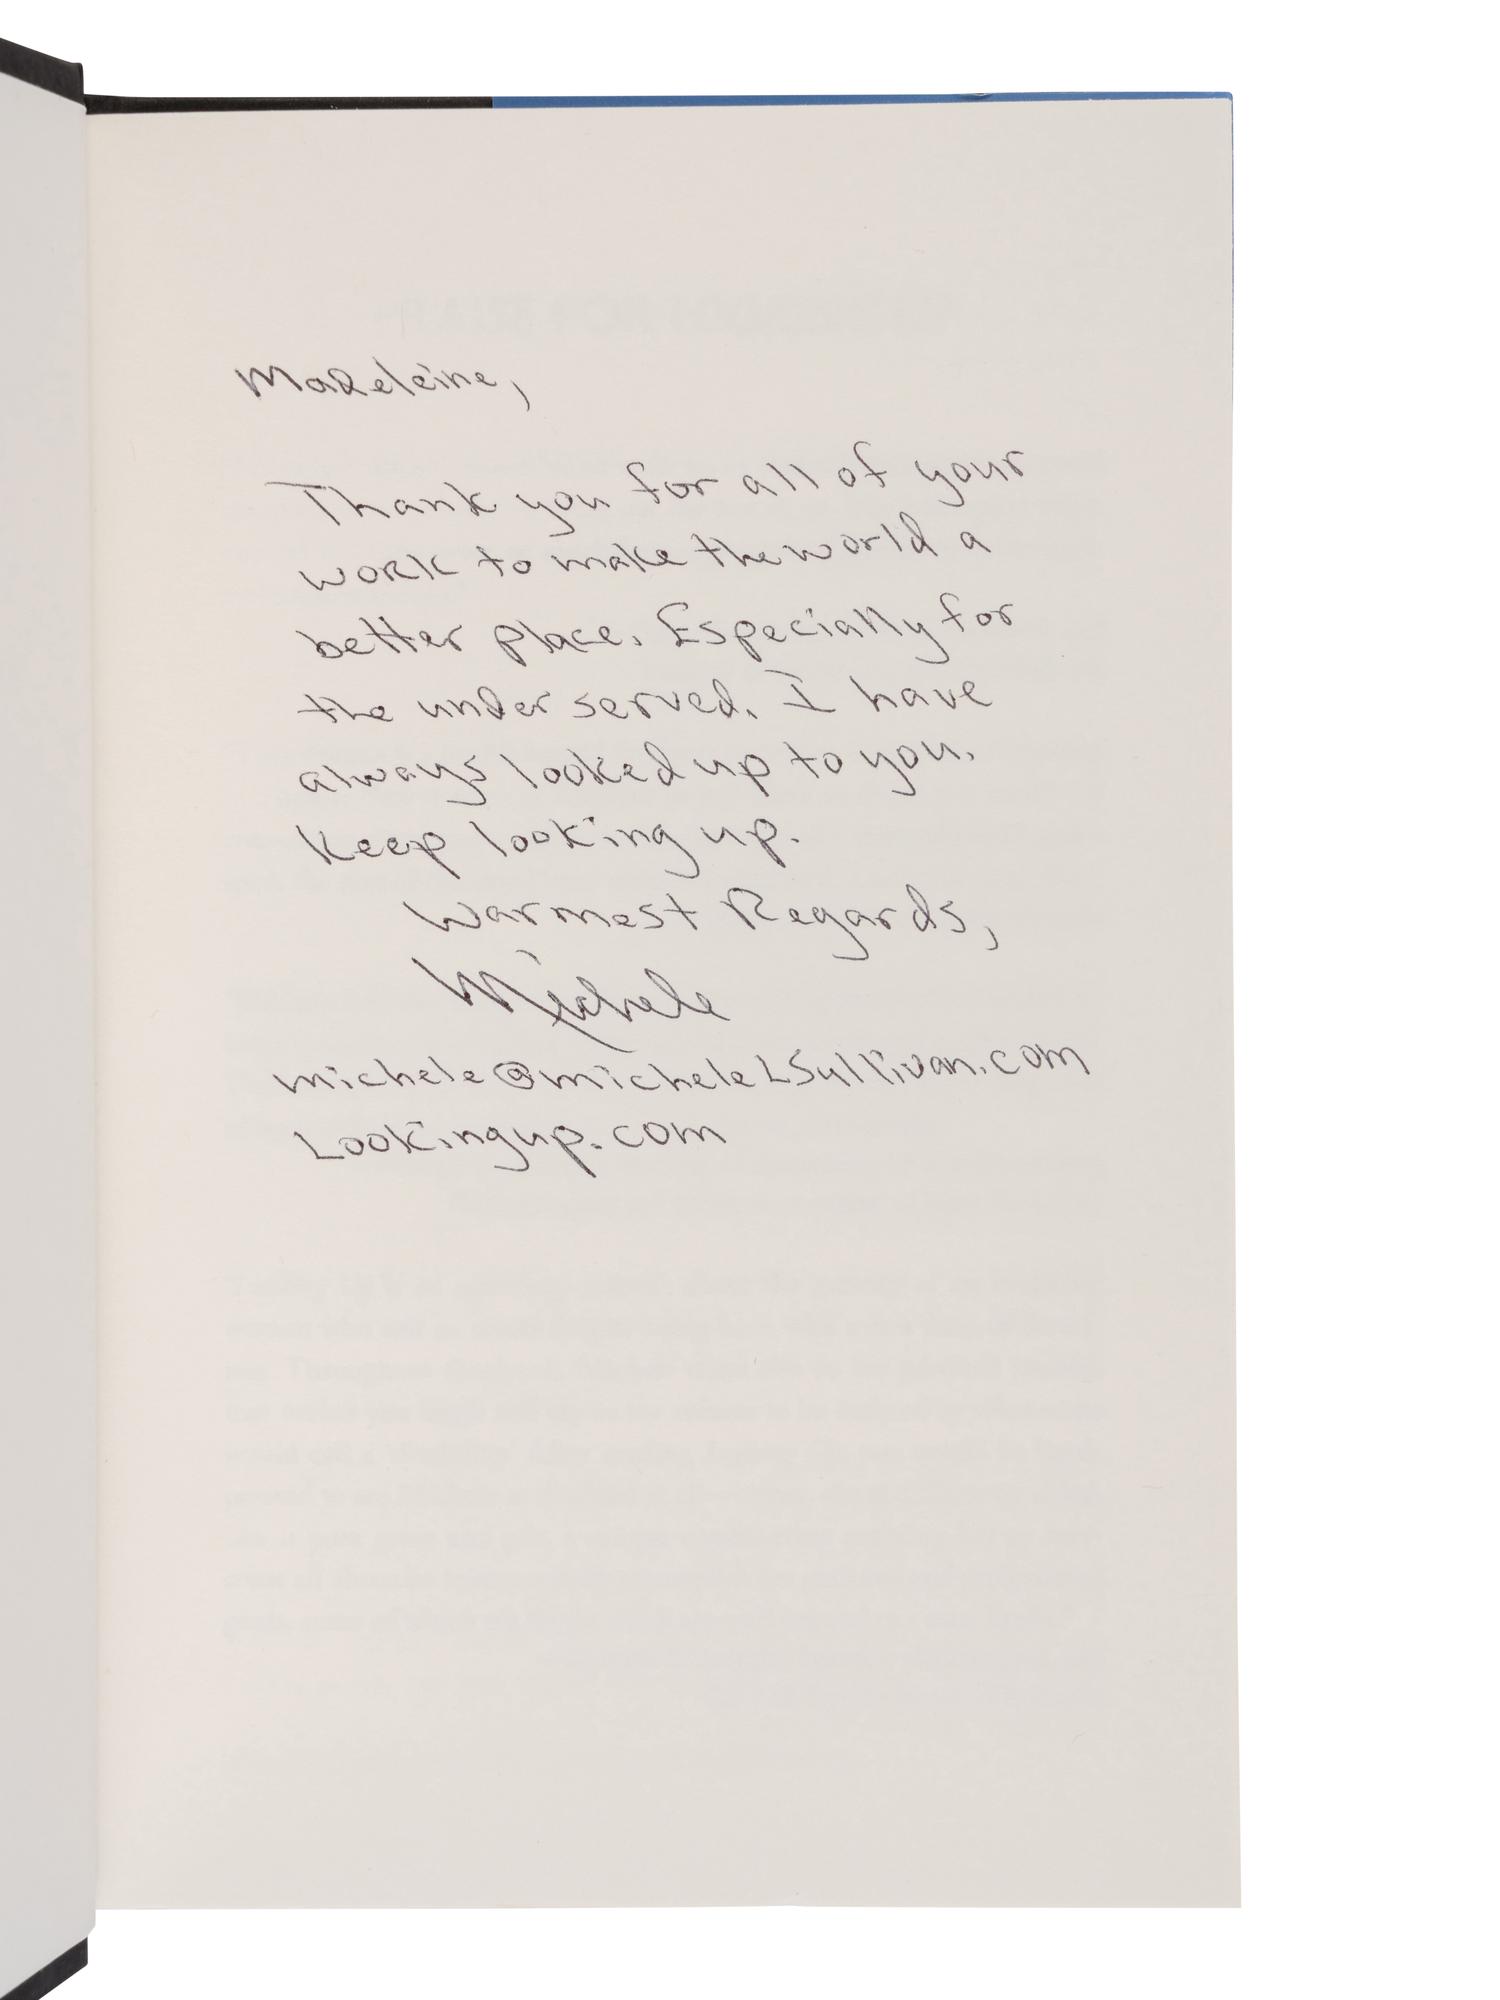 Madeleine,
Thank you for all of your
work to make the world a
better place. Especially for
the under served. I have
always looked up to you.
Keep looking up.
Warmest Regards,
Michele
michele@micheleLSullivan.com
Lookingup.com